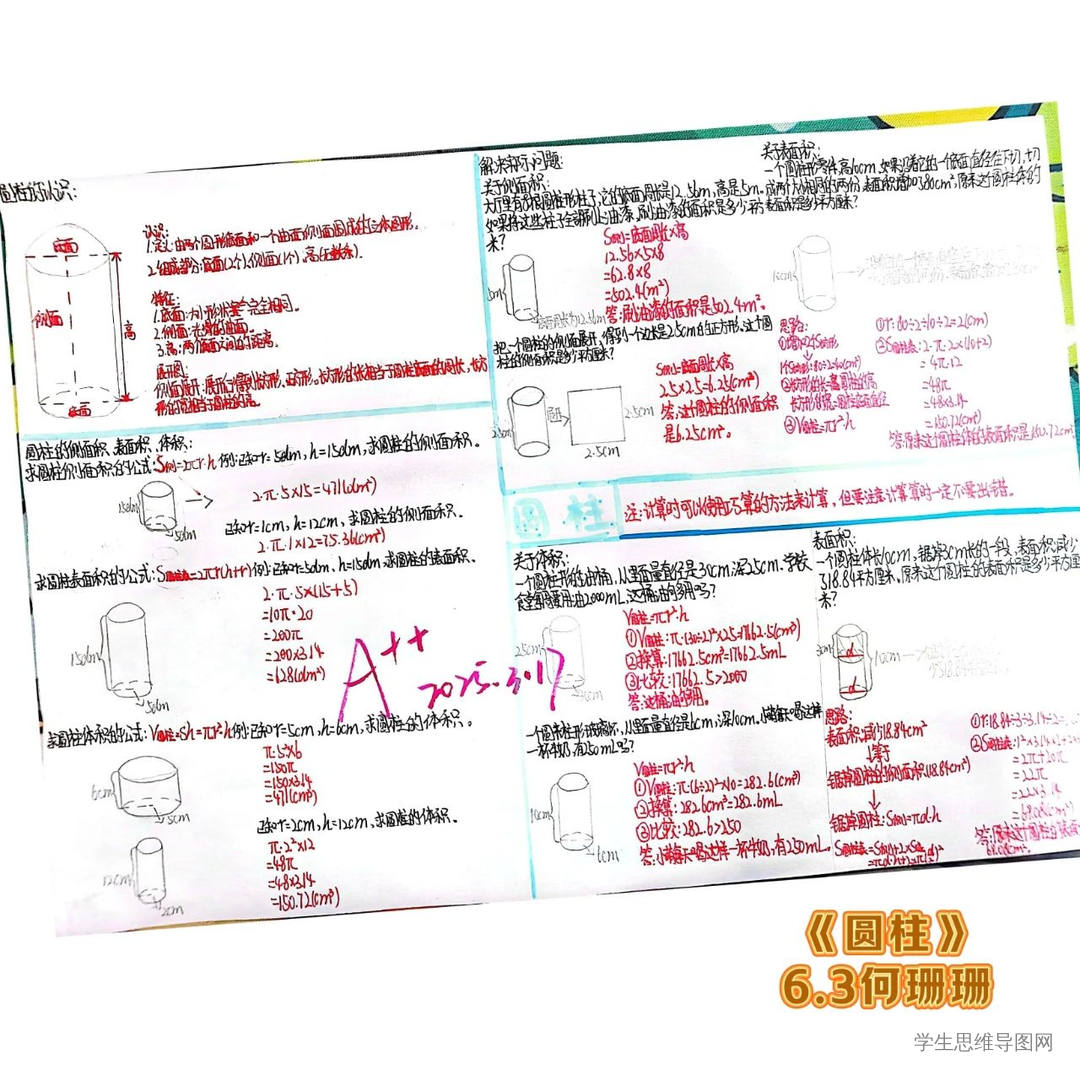 圆柱的认识:
底面
侧面
高
底面
认识:
1.定义:由两个圆形底面和一个曲面(侧面)围成的立体图形。
2.组成部分:底面(2个)、侧面(1个)、高(无数条).
特征:
1.底面:大小形状完全相同。
2.侧面:光滑的曲面。
3.高:两个底面之间的距离。
展开图:
侧面展开:展形后得到长方形,正方形。长方形的长相当于圆柱底面的周长,长方
形的宽相当于圆柱的高。
圆柱的侧面积、表面积、体积:
求圆柱侧面积的公式:S侧=2πr·h 例:已知r=5dm,h=15dm,求圆柱的侧面积。
15dm
5dm
2·π·5×15=471(dm²)
已知r=1cm,h=12cm,求圆柱的侧面积.
2·π·1×12=75.36(cm²)
求圆柱表面积的公式:S圆柱表=2πr(h+r) 例:已知r=5dm,h=15dm,求圆柱的表面积.
15dm
5dm
2·π·5×(15+5)
=10π·20
=200π
=200×3.14
=628(dm²)
A++
2025.3.17
求圆柱体积的公式:V圆柱=Sh=πr²·h 例:已知r=5cm,h=6cm,求圆柱的体积。
6cm
5cm
π·5²×6
=150π
=150×3.14
=471(cm³)
已知r=2cm,h=12cm,求圆柱的体积.
12cm
2cm
π·2²×12
=48π
=48×3.14
=150.72(cm³)
解决实际问题:
关于侧面积:
大厅里有8根圆柱形柱子,它的底面周长是12.56m,高是5m.
如果将这些柱子全部刷上油漆,刷油漆的面积是多少平方
米?
5m
底面周长为12.56m
S侧=底面周长×高
12.56×5×8
=62.8×8
=502.4(m²)
答:刷油漆的面积是502.4m².
把一个圆柱的侧面展开,得到一个边长是2.5cm的正方形,这个圆
柱的侧面积是多少平方厘米?
2.5cm
展开
2.5cm
2.5cm
S侧=底面周长×高
2.5×2.5=6.25(cm²)
答:这个圆柱的侧面积
是6.25cm²。
关于表面积:
一个圆柱形零件,高10cm,如果沿着它的一个底面直径往下切,切
成两个大小相同的两份,表面积增加了80cm²,原来这个圆柱体的
表面积是多少平方厘米?
10cm
思路:
①增加2个S长方形
1个S长方形:80÷2=40(cm²)
②长方形的长=圆柱的高
长方形的宽=圆柱底面直径
①r:80÷2÷10÷2=2(cm)
②S圆柱表:2·π·2×(10+2)
=4π·12
=48π
=48×3.14
=150.72(cm²)
答:原来这个圆柱体的表面积是150.72cm²
圆柱
注:计算时可以使用巧算的方法来计算,但要注意计算时一定不要出错。
关于体积:
一个圆柱形的油桶,从里面量直径是30cm,深25cm.学校
食堂需要用油2000mL,这桶油的够用吗?
25cm
V圆柱=πr²·h
①V圆柱:π·(30÷2)²×25=17662.5(cm³)
②换算:17662.5cm³=17662.5mL
③比较:17662.5>2000
答:这桶油的够用。
10cm
6cm
V圆柱=πr²·h
①V圆柱:π·(6÷2)²×10=282.6(cm³)
②换算:282.6cm³=282.6mL
③比较:282.6>250
答:小萌每天喝这样一杯牛奶,有250mL.
表面积:
一个圆柱体长10cm,锯掉3cm长的一段,表面积减少
了18.84平方厘米,原来这个圆柱的表面积是多少平方厘
米?
3cm
d
10cm
d
思路:
表面积减少18.84cm²
↓等于
锯掉圆柱的侧面积(18.84cm²)
锯掉圆柱:S侧=πd·h
=2π+20π
=22π
=22×3.14
《圆柱》
6.3何珊珊
学生思维导图网